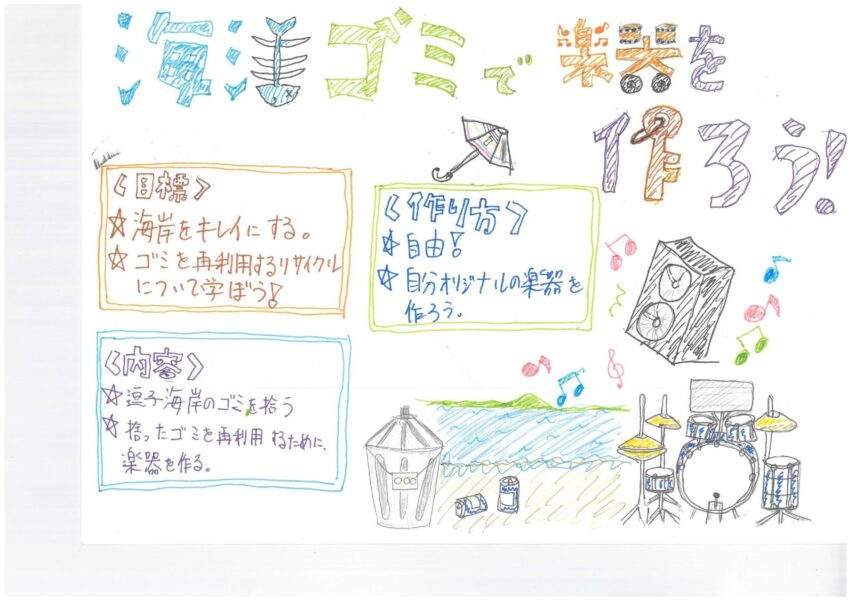 海洋ゴミで楽器を
作ろう!
〈目標〉
☆海岸をキレイにする。
☆ゴミを再利用するリサイクル
について学ぼう!
〈作り方〉
☆自由!
☆自分オリジナルの楽器を
作ろう。
〈内容〉
☆逗子海岸のゴミを拾う
☆拾ったゴミを再利用するために、
楽器を作る。